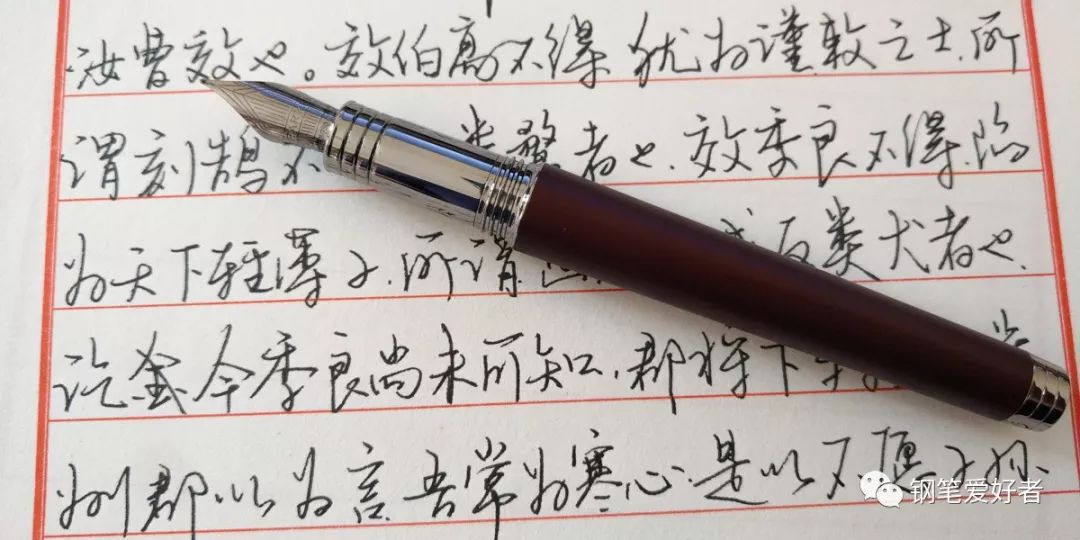 汝曹效也。效伯高不得犹为谨敕之士,所
谓刻鹄不类鹜者也.效季良不得陷
为天下轻薄子,所谓成反类犬者也.
讫今季良尚未所知,郡将下车
州郡以为言吾常为寒心.是以不愿子孙
钢笔爱好者